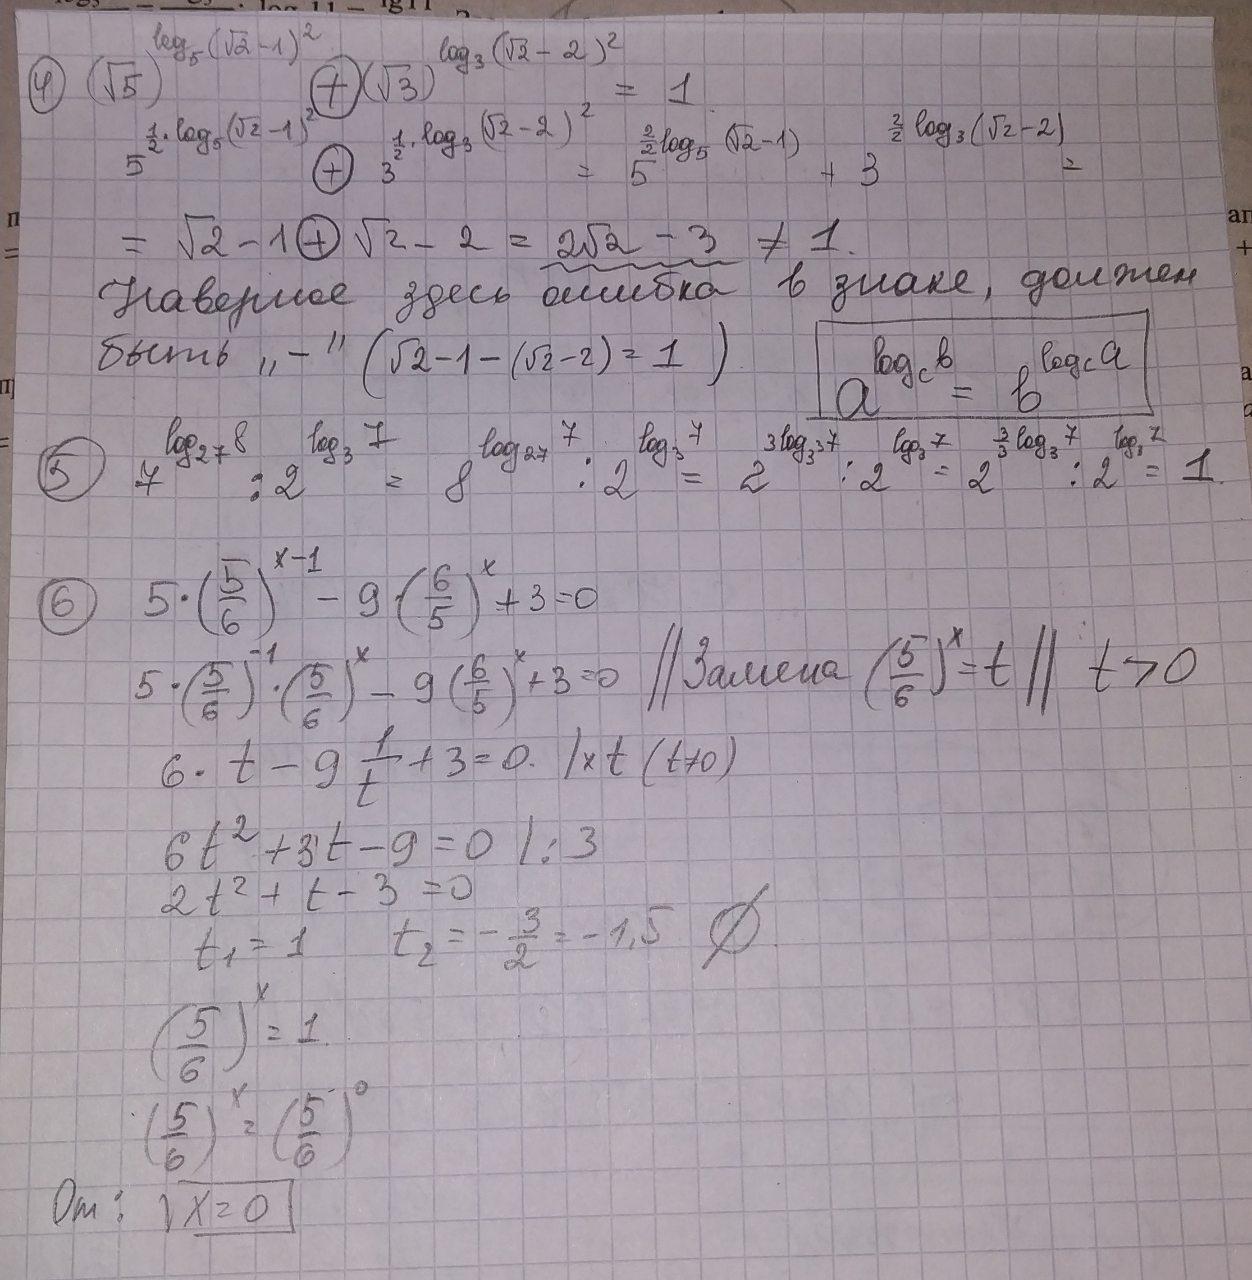 ④ (√5)^{log₅(√2-1)²} ⊕ (√3)^{log₃(√2-2)²} = 1.
5^{1/2·log₅(√2-1)²} ⊕ 3^{1/2·log₃(√2-2)²} = 5^{2/2 log₅(√2-1)} + 3^{2/2 log₃(√2-2)} =
= √2-1 ⊕ √2-2 = 2√2-3 ≠ 1.
Наверное здесь ошибка в знаке, должен
быть „-" (√2-1-(√2-2)=1)
a^{log_c b} = b^{log_c a}
⑤ 7^{log₂₇8} : 2^{log₃7} = 8^{log₂₇7} : 2^{log₃7} = 2^{3log_{3³}7} : 2^{log₃7} = 2^{3/3 log₃7} : 2^{log₃7} = 1.
⑥ 5·(5/6)^{x-1} - 9·(6/5)^x + 3=0
5·(5/6)^{-1}·(5/6)^x - 9(6/5)^x + 3=0 // Замена (5/6)^x = t // t>0
6·t - 9 1/t + 3=0. /×t (t≠0)
6t² + 3t - 9 = 0 /:3
2t² + t - 3 = 0
t₁ = 1 t₂ = -3/2 = -1,5 ∅
(5/6)^x = 1.
(5/6)^x = (5/6)^0
От: x=0